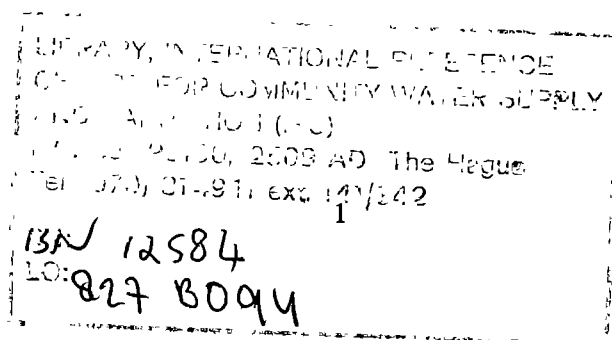 LIBRARY, INTERNATIONAL REFERENCE
CENTRE FOR COMMUNITY WATER SUPPLY
AND SANITATION (IRC)
2509 AD The Hague
Tel. (070) 814911 ext 141/142
1
BN 12584
LO: 827 BO94